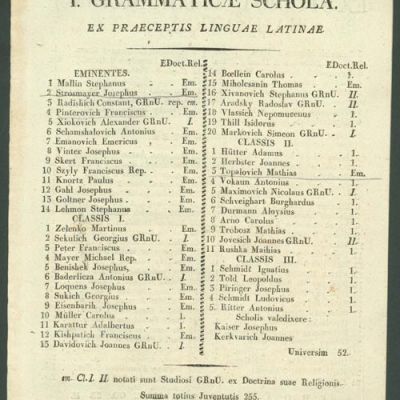 I. GRAMMATICÆ SCHOLA.
EX PRAECEPTIS LINGUAE LATINAE.
EDoct.Rel.
EMINENTES.
1 Mallin Stephanus Em.
2 Strosmayer Josephus Em.
3 Radishich Constant, GRnU. rep. em.
4 Pinterovich Franciscus Em.
5 Xiokovich Alexander GRnU. I.
6 Schamshalovich Antonius Em.
7 Emanovich Emericus Em.
8 Vinter Josephus Em.
9 Skert Franciscus Em.
10 Szyly Franciscus Rep. Em.
11 Knortz Paulus Em.
12 Gahl Josephus Em.
13 Goltner Josephus Em.
14 Lehmon Stephanus Em.
CLASSIS I.
1 Zelenko Martinus Em.
2 Sekulich Georgius GRnU. I.
3 Peter Franciscus Em.
4 Mayer Michael Rep. Em.
5 Benishek Josephus, Em.
6 Baderlicza Antonius GRnU. I.
7 Loquens Josephus Em.
8 Sukich Georgius Em.
9 Eisenbarih Josephus Em.
10 Müller Carolus 1.
11 Karattur Adalbertus 1.
12 Kishpatich Franciscus Em.
15 Davidovich Joannes GRnU. I.
EDoct.Rel.
14 Bœllein Carolus 1.
15 Miholesanin Thomas Em.
16 Xivanovich Stephanus GRnU. II.
17 Aradsky Radoslav GRnU. II.
18 Vlassich Nepomucenus 1.
19 Thill Isidorus 1.
20 Markovich Simeon GRnU. I.
CLASSIS II.
1 Hütter Adamus 1.
2 Herbster Joannes 1.
3 Topalovich Mathias Em.
4 Vokaun Antonius 1.
5 Maximovich Nicolaus GRnU. I.
6 Schveighart Burghardus 1.
7 Durmann Aloysius 1.
8 Arno Carolus 1.
9 Trobosz Mathias 1.
10 Jovesich Joannes GRnU. II.
11 Rushka Mathias 1.
CLASSIS III.
1 Schmidt Ignatius 1.
2 Told Leopoldus 1.
3 Piringer Josephus 1.
4 Schmidt Ludovicus 1.
5 Ritter Antonius 1.
Scholis valedixere:
Kaiser Josephus
Kerkvarich Joannes
Universim 52.
em. Cl. I. II. notati sunt Studiosi GRnU. ex Doctrina suae Religionis.
Summa totius Juventutis 255.